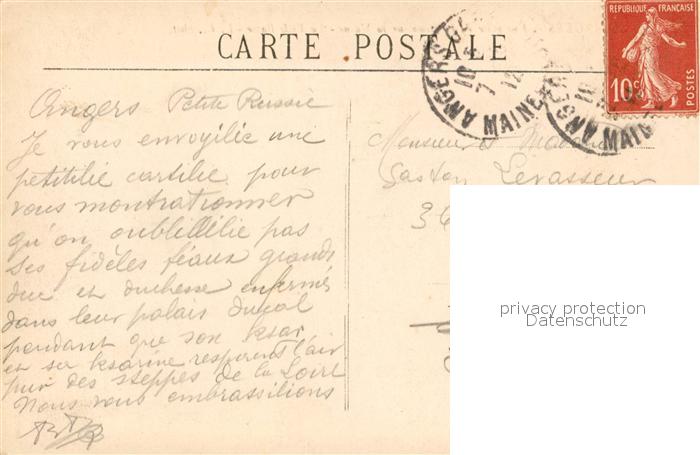 CARTE POSTALE
RÉPUBLIQUE FRANÇAISE
10c
POSTES
ANGERS
MAINE
Angers Petite Russie
Je vous envoyilie une
petitilie cartilie pour
vous montrationner
qu'on oublillilie pas
ses fidèles féaux grands
duc et duchesse enfermés
dans leur palais ducal
pendant que son ksar
et sa ksarine respirent l'air
pur des steppes de la Loire
Nous vous embrassilions
Monsieur et Madame
Gaston Levasseur
36
privacy protection
Datenschutz